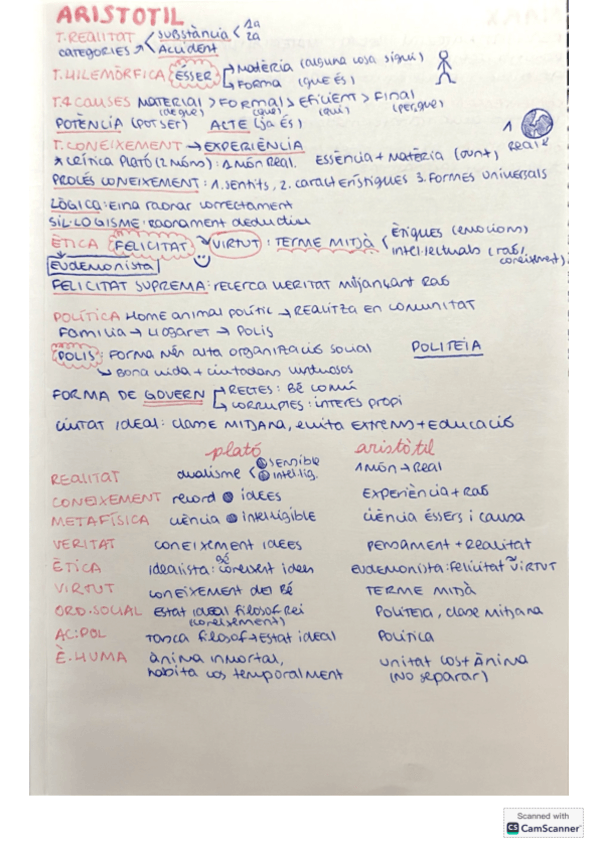 ARISTOTIL
T. REALITAT < SUBSTÀNCIA < 1a 2a
CATEGORIES ↗ ACCIDENT
T. HILEMÒRFICA ÉSSER → Matèria (alguna cosa sigui)
→ FORMA (què és)
T.4 CAUSES MATERIAL > FORMAL > EFICIENT > FINAL
(de què) (què) (qui) (per què)
POTÈNCIA (POT SER) ACTE (ja és)
1 Real
T. CONEIXEMENT → EXPERIÈNCIA
* CRÍTICA PLATÓ (2 MÓNS): 1 MÓN REAL. ESSÈNCIA + MATÈRIA (junt)
PROCÉS CONEIXEMENT: 1. SENTITS, 2. CARACTERÍSTIQUES 3. FORMES UNIVERSALS
LÒGICA: EINA RAONAR CORRECTAMENT
SIL·LOGISME: RAONAMENT DEDUCTIU
ÈTICA FELICITAT VIRTUT: TERME MITJÀ < ÈTIQUES (EMOCIONS)
INTEL·LECTUALS (RAÓ, coneixement)
EUDEMONISTA
FELICITAT SUPREMA: RECERCA VERITAT MITJANÇANT RAÓ
POLÍTICA HOME ANIMAL POLÍTIC → REALITZA EN COMUNITAT
FAMILIA → LLOGARET → POLIS
POLIS: FORMA MÉS ALTA ORGANITZACIÓ SOCIAL POLITEIA
↳ BONA VIDA + CIUTADANS VIRTUOSOS
FORMA DE GOVERN → RECTES: BÉ COMÚ
→ CORRUPTES: INTERÈS PROPI
CIUTAT IDEAL: CLASSE MITJANA, EVITA EXTREMS + EDUCACIÓ
plató aristòtil
REALITAT dualisme < SENSIBLE intel·lig. 1 MÓN → REAL
CONEIXEMENT record IDEES EXPERIÈNCIA + RAÓ
METAFÍSICA CIÈNCIA INTEL·LIGIBLE CIÈNCIA ÉSSERS I CAUSA
VERITAT CONEIXEMENT IDEES PENSAMENT + REALITAT
ÈTICA IDEALISTA: coneixent idees EUDEMONISTA: FELICITAT ~ VIRTUT
VIRTUT CONEIXEMENT DEL BÉ TERME MITJÀ
ORD. SOCIAL ESTAT IDEAL FILÒSOF REI POLITEIA, CLASSE MITJANA
(coneixement)
AC. POL TASCA FILÒSOF → ESTAT IDEAL POLÍTICA
È. HUMÀ ÀNIMA INMORTAL, UNITAT COS + ÀNIMA
HABITA COS TEMPORALMENT (NO SEPARAR)
Scanned with
CS CamScanner